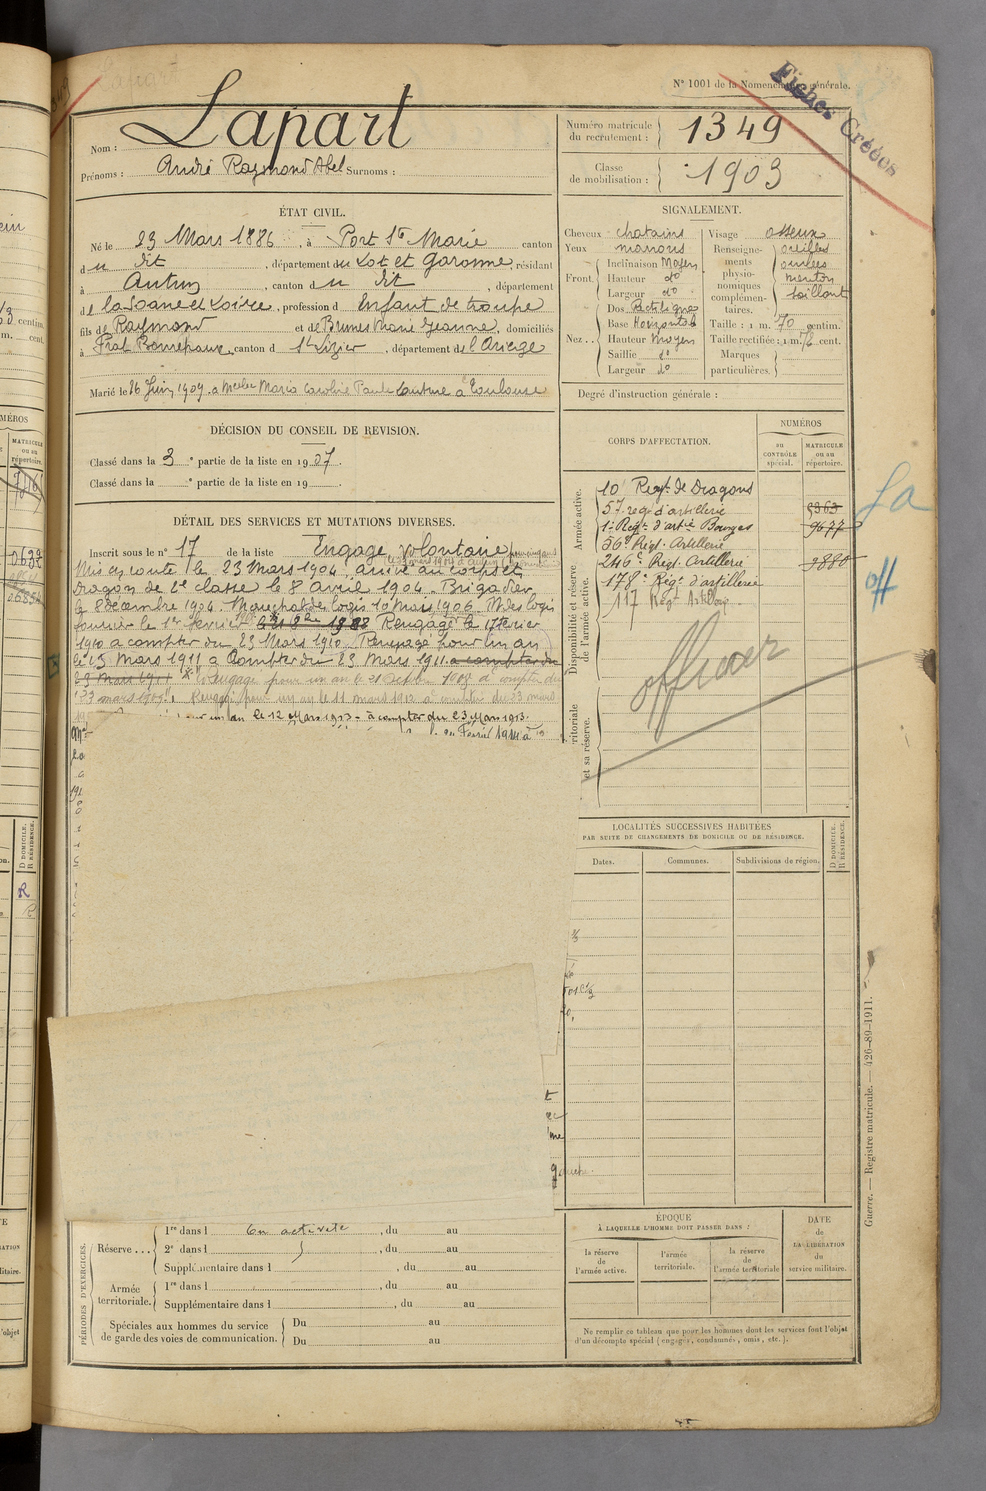 N° 1001 de la Nomenclature générale.
Fiches Créées
Nom : Lapart
Prénoms : André Raymond Abel Surnoms :
Numéro matricule du recrutement : 1349
Classe de mobilisation : 1903
ÉTAT CIVIL.
Né le 23 Mars 1886, à Port Ste Marie canton
du dit, département du Lot et Garonne, résidant
à Autun, canton du dit, département
de la Saone et Loire, profession d Enfant de troupe
fils de Raymond et de Brunes Marie Jeanne, domiciliés
à Prat Bonrepaux, canton d St Lizier, département de l'Ariège
Marié le 26 Juin 1909 à Melle Maria Caroline Paule à Toulouse
SIGNALEMENT.
Cheveux chatains
Yeux marrons
Front. Inclinaison Moyen
Hauteur do
Largeur do
Nez. Dos Rectiligne
Base Horizontale
Hauteur Moyen
Saillie do
Largeur do
Visage osseux
Renseignements physionomiques complémentaires. oreilles ourlées menton saillant
Taille : 1 m. 70 centim.
Taille rectifiée : 1 m. 76 cent.
Marques particulières.
Degré d'instruction générale :
DÉCISION DU CONSEIL DE REVISION.
Classé dans la 3e partie de la liste en 1907.
Classé dans la e partie de la liste en 19
CORPS D'AFFECTATION.
NUMÉROS
au CONTRÔLE spécial.
MATRICULE ou au répertoire.
Armée active.
10e Regt de Dragons
57 reg. d'artillerie 5363
1er Regt. d'artie Bourges 9677
56e Régt. Artillerie
Disponibilité et réserve de l'armée active.
246e Régt. Artillerie 3880
178e Régt. d'artillerie
117 Regt Artillerie
officier
La
off
ritoriale et sa réserve.
DÉTAIL DES SERVICES ET MUTATIONS DIVERSES.
Inscrit sous le n° 17 de la liste Engagé volontaire pour cinq ans
Mis en route le 23 Mars 1904, arrivé au corps et
Dragon de 2e classe le 8 avril 1904. Brigadier
le 8 décembre 1904. Marechal des logis 10 Mars 1906. M des logis
fourrier le 1er fevrier Rengagé le 17 février
1910 à compter du 23 Mars 1910. Rengagé pour un an
le 13 Mars 1911 à Compter du 23 Mars 1911. a compter du
23 Mars 1911 Rengagé pour un an le 21 Septbre 1908 à compter du
23 mars 1909. Rengagé pour un an le 11 mars 1912 à compter du 23 mars
pour un an le 12 Mars 1913 - à compter du 23 Mars 1913.
Février 1914 à
gauche.
LOCALITÉS SUCCESSIVES HABITÉES
PAR SUITE DE CHANGEMENTS DE DOMICILE OU DE RÉSIDENCE.
Dates. Communes. Subdivisions de région.
D DOMICILE. R RÉSIDENCE.
PÉRIODES D'EXERCICES.
Réserve... 1re dans l En activité, du au
2e dans l, du au
Supplémentaire dans l, du au
Armée territoriale. 1re dans l, du au
Supplémentaire dans l, du au
Spéciales aux hommes du service de garde des voies de communication. Du au
Du au
ÉPOQUE
À LAQUELLE L'HOMME DOIT PASSER DANS :
la réserve de l'armée active.
l'armée territoriale.
la réserve de l'armée territoriale
DATE de LA LIBÉRATION du service militaire.
Ne remplir ce tableau que pour les hommes dont les services font l'objet
d'un décompte spécial (engagés, condamnés, omis, etc.).
Guerre. — Registre matricule. — 426-89-1911.